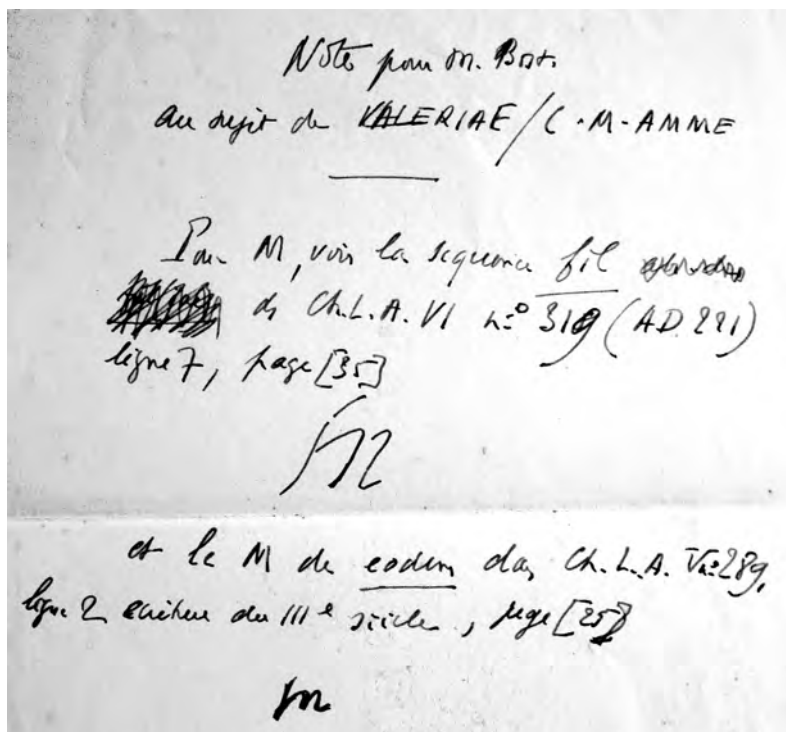 Note pour M. Bost.
au sujet de VALERIAE / C · M · AMME
Pour M, voir la séquence fil
ds Ch.L.A. VI n° 319 (AD 221)
ligne 7, page [35]
et le M de eodem dans Ch. L.A. V n° 289,
ligne 2 écriture du IIIe siècle, page [25]
m